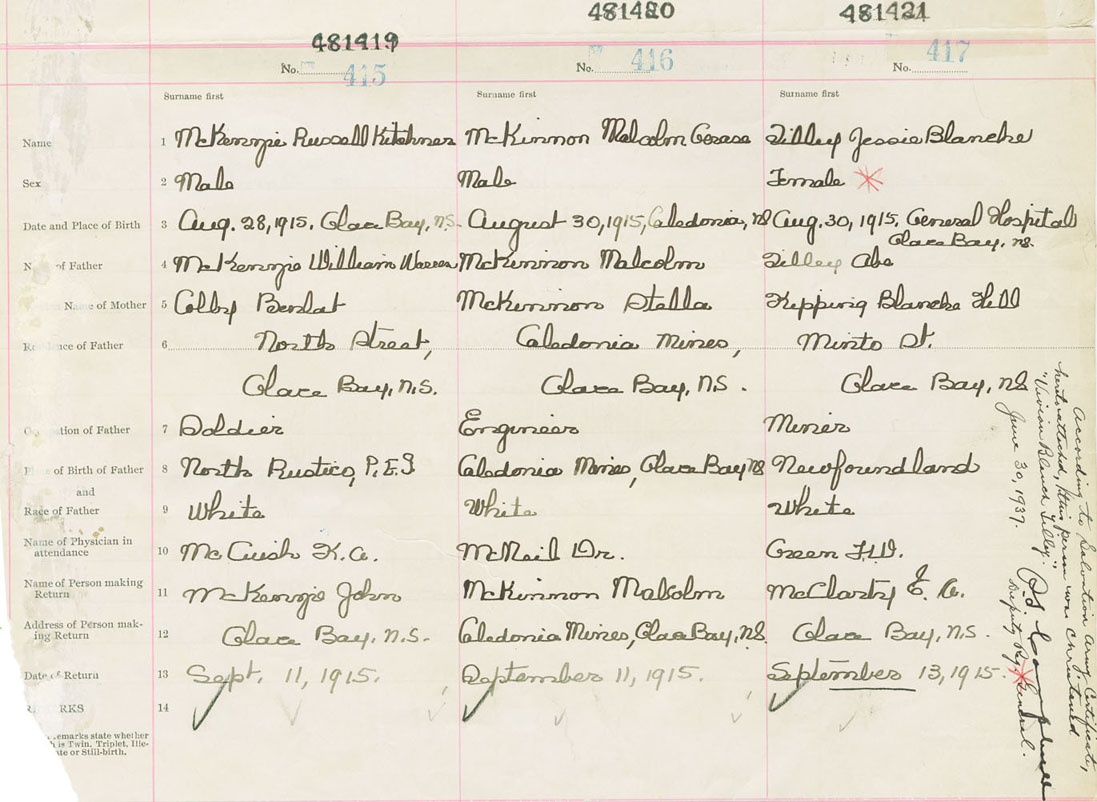 481419 481420 481421
No. 415 No. 416 No. 417
Surname first Surname first Surname first
Name 1 McKenzie Russell Kitchner McKinnon Malcolm Tilley Jessie Blanche
Sex 2 Male Male Female
Date and Place of Birth 3 Aug. 28, 1915. Glace Bay, N.S. August 30, 1915, Caledonia, NS Aug. 30, 1915. General Hospital
Glace Bay, NS.
of Father 4 McKenzie William Warren McKinnon Malcolm Tilley Abe
Name of Mother 5 Colby McKinnon Stella Kipping Blanche Hill
of Father 6 North Street, Caledonia Mines, Minto St.
Glace Bay, N.S. Glace Bay, NS. Glace Bay, NS
of Father 7 Soldier Engineer Miner
of Birth of Father 8 North Rustico, P.E.I Caledonia Mines, Glace Bay NS Newfoundland
and
Race of Father 9 White White White
Name of Physician in
attendance 10 McCuish K.A. McNeil Dr. Green
Name of Person making
Return 11 McKenzie John McKinnon Malcolm McClarty E. A.
Address of Person mak-
ing Return 12 Glace Bay, N.S. Caledonia Mines, Glace Bay, NS. Glace Bay, N.S.
Date of Return 13 Sept. 11, 1915. September 11, 1915. September 13, 1915.
14
remarks state whether
is Twin, Triplet, Ille-
or Still-birth.
According to Salvation Army Certificate,
attached, this person was christened
"Vivian Blanch Tilley."
June 30, 1937.
Deputy Reg. General.